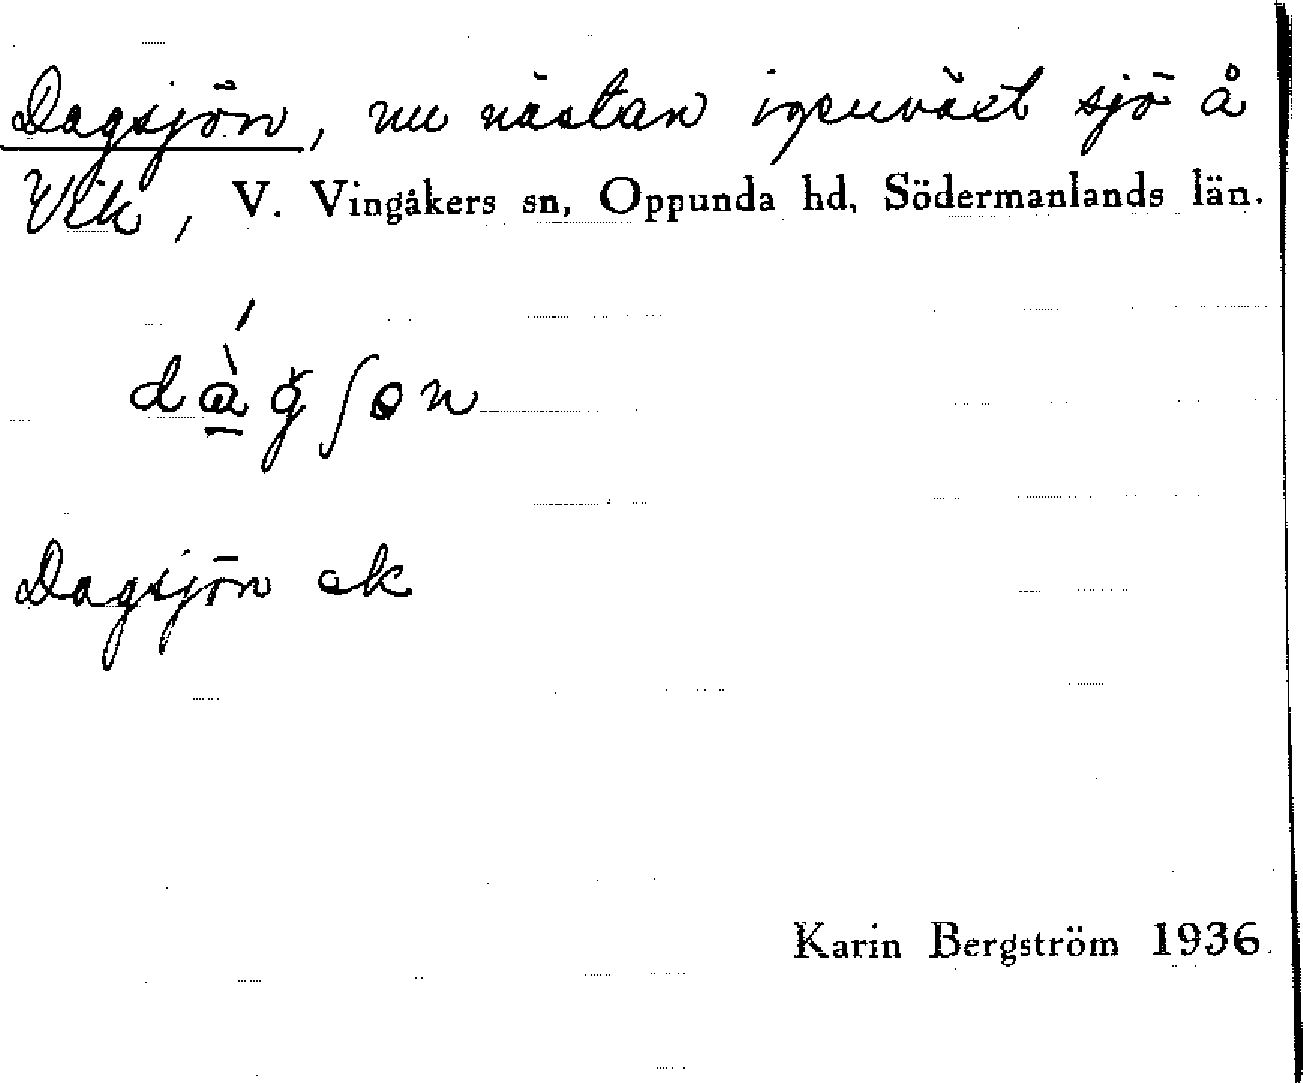 Dagsjön, nu nästan igenväxt sjö å
Vik, V. Vingåkers sn, Oppunda hd, Södermanlands län.
Dagsjön ek
Karin Bergström 1936